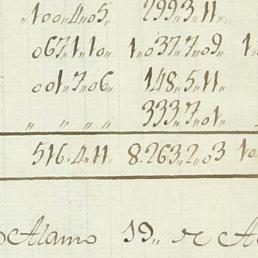 „100„4„05„ 299„3„11„
„067„1„10„ 1„037„7„09„ 1„
„001„7„06„ 148„5„11„
„ „ „ „ 333„7„01„
516„4„11 8„263„2„03
Alamo 19„ de